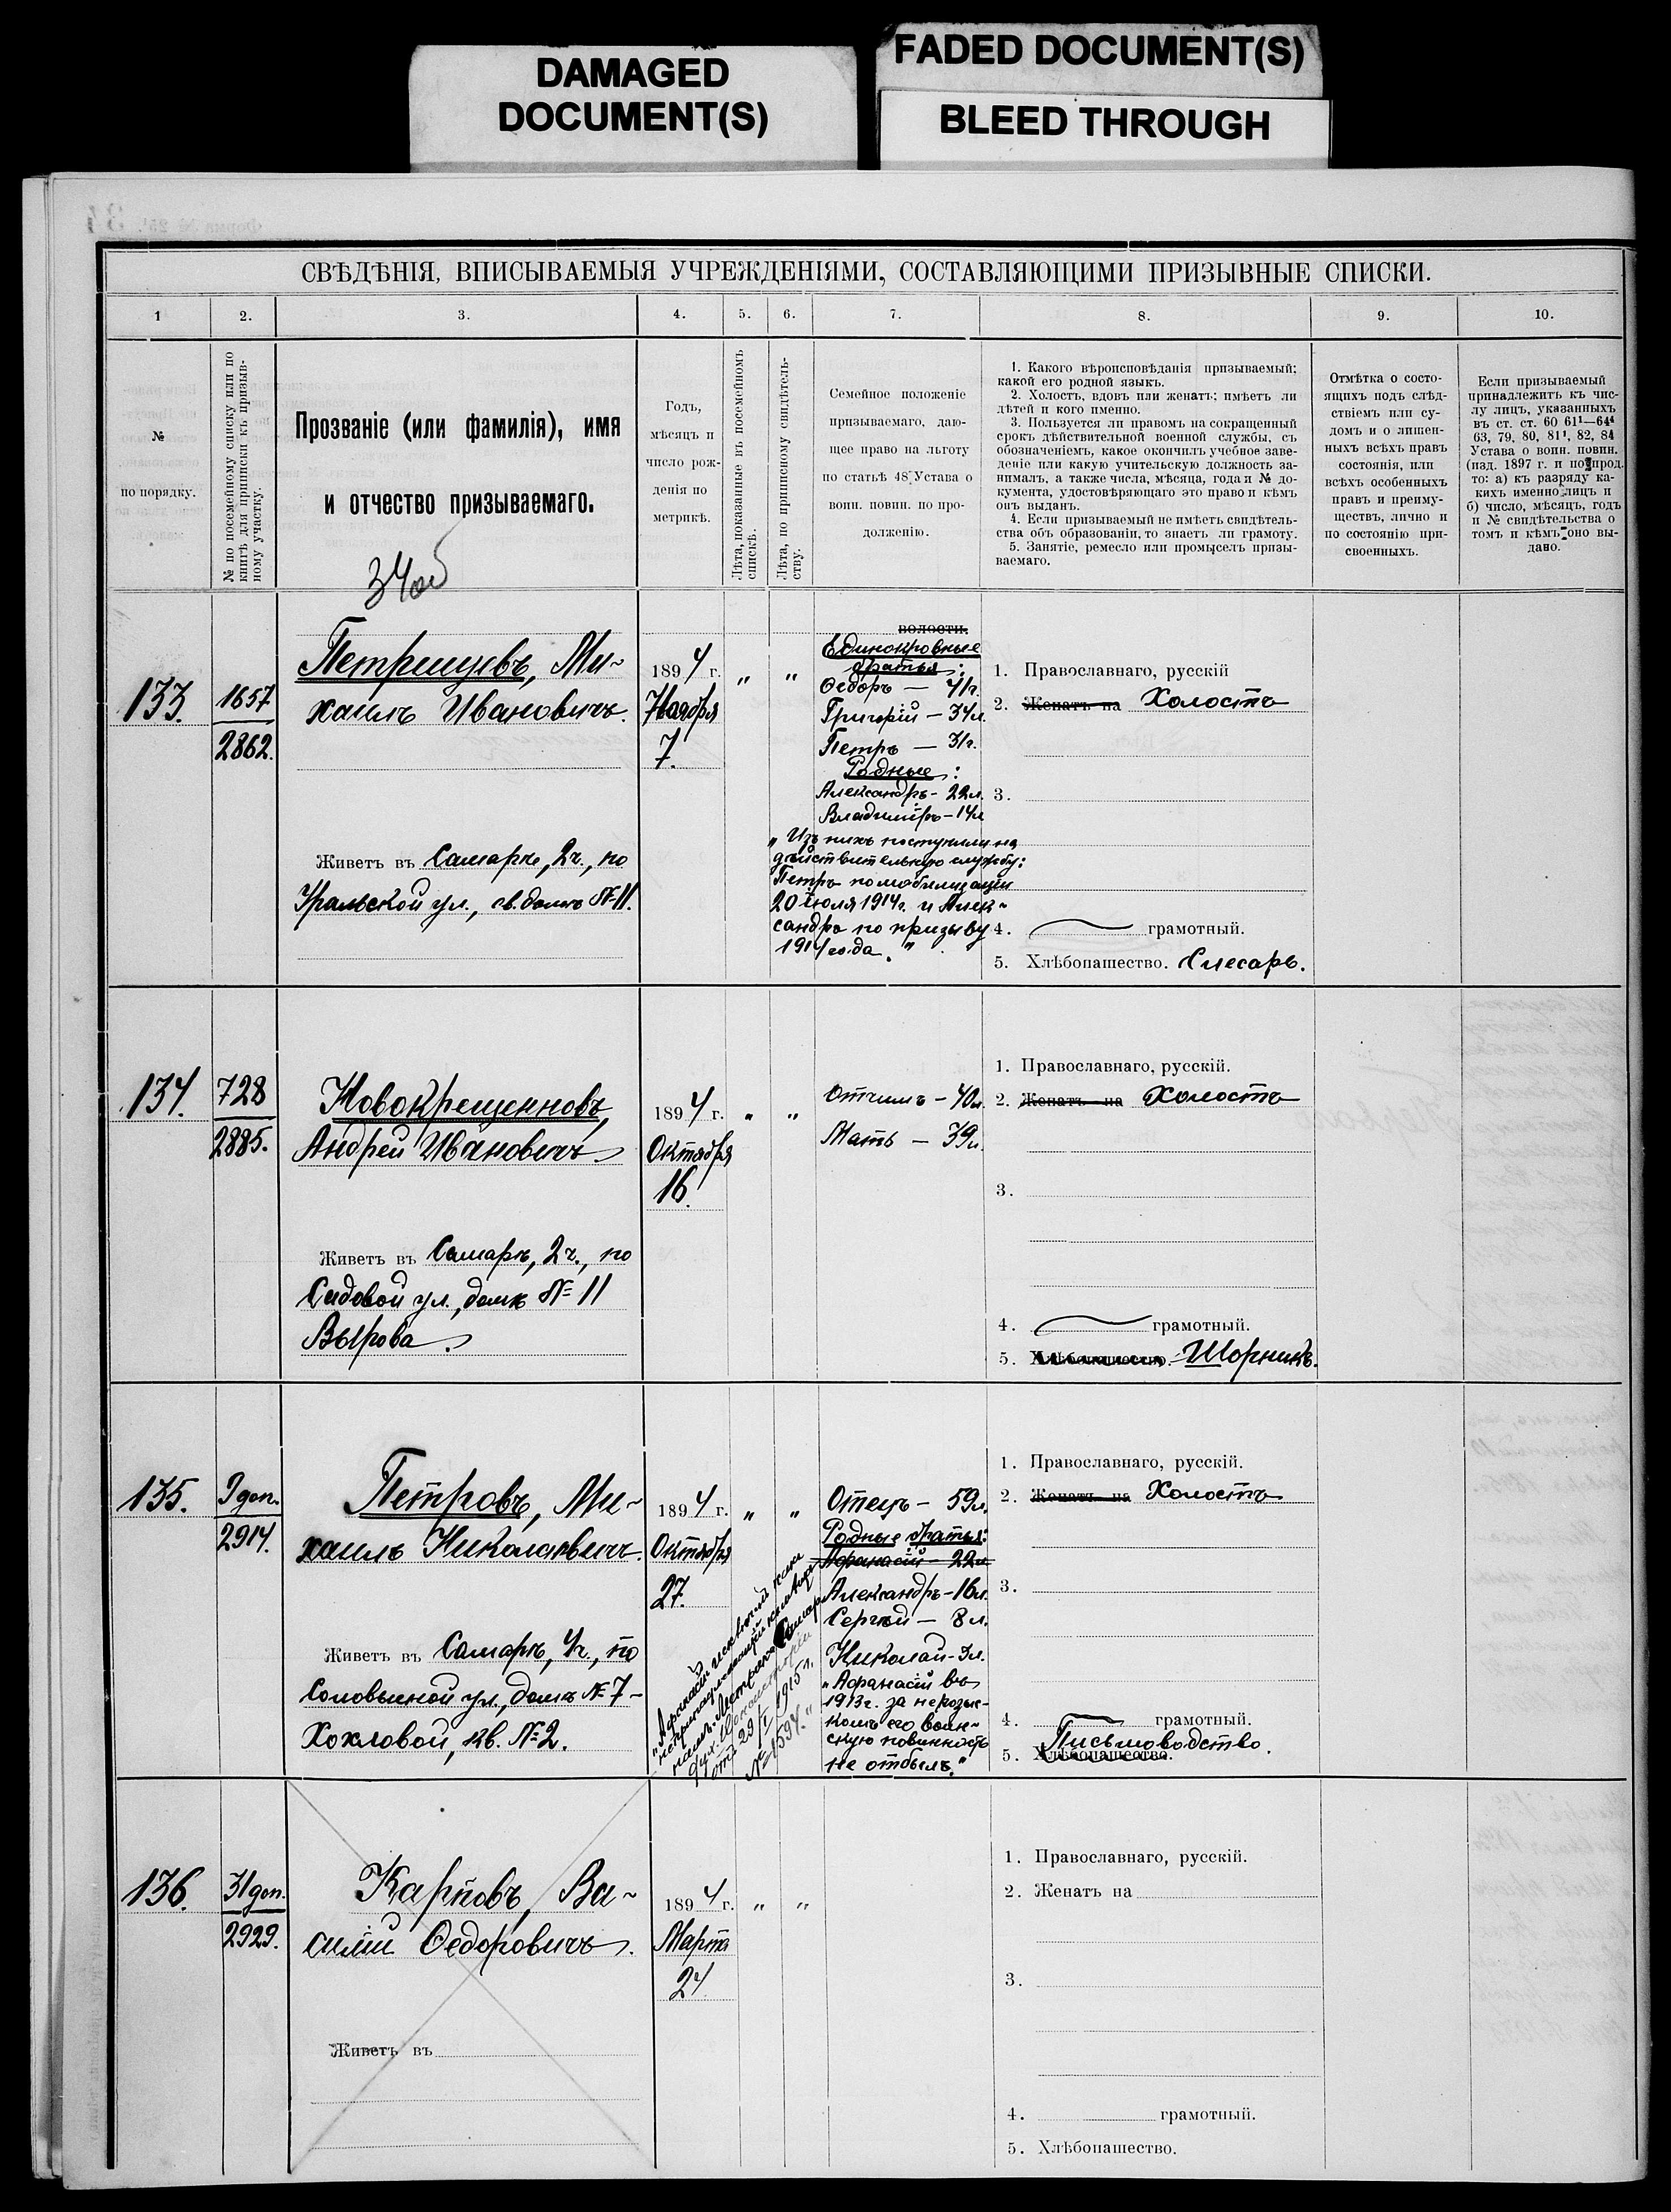 DAMAGED
DOCUMENT(S)
FADED DOCUMENT(S)
BLEED THROUGH
СВѢДѢНІЯ, ВПИСЫВАЕМЫЯ УЧРЕЖДЕНІЯМИ, СОСТАВЛЯЮЩИМИ ПРИЗЫВНЫЕ СПИСКИ.
1 2. 3. 4. 5. 6. 7. 8. 9. 10.
№
по порядку.
№ по посемейному списку или по
книгѣ для приписки къ призыв-
ному участку.
Прозваніе (или фамилія), имя
и отчество призываемаго.
34 об
Годъ,
мѣсяцъ и
число рож-
денія по
метрикѣ.
Лѣта, показанные въ посемейномъ
спискѣ.
Лѣта, по приписному свидѣтель-
ству.
Семейное положеніе
призываемаго, даю-
щее право на льготу
по статьѣ 48 Устава о
воин. повин. по про-
долженію.
1. Какого вѣроисповѣданія призываемый;
какой его родной языкъ.
2. Холостъ, вдовъ или женатъ; имѣетъ ли
дѣтей и кого именно.
3. Пользуется ли правомъ на сокращенный
срокъ дѣйствительной военной службы, съ
обозначеніемъ, какое окончилъ учебное заве-
деніе или какую учительскую должность за-
нималъ, а также числа, мѣсяца, года и № до-
кумента, удостовѣряющаго это право и кѣмъ
онъ выданъ.
4. Если призываемый не имѣетъ свидѣтель-
ства объ образованіи, то знаетъ ли грамоту.
5. Занятіе, ремесло или промыселъ призы-
ваемаго.
Отмѣтка о состо-
ящихъ подъ слѣд-
ствіемъ или су-
домъ и о лишен-
ныхъ всѣхъ правъ
состоянія, или
всѣхъ особенныхъ
правъ и преиму-
ществъ, лично и
по состоянію при-
своенныхъ.
Если призываемый
принадлежитъ къ чис-
лу лицъ, указанныхъ
въ ст. ст. 60 61¹—64⁴
63, 79, 80, 81¹, 82, 84
Устава о воин. повин.
(изд. 1897 г. и по прод.
то: а) къ разряду ка-
кихъ именно лицъ и
б) число, мѣсяцъ, годъ
и № свидѣтельства о
томъ и кѣмъ оно вы-
дано.
133.
1657
2862.
Петрищевъ, Ми-
хаилъ Ивановичъ.
Живетъ въ Самарѣ, 2ч., по
Уральской ул., св. домъ № 11.
1894 г.
Ноября
7.
" "
волости.
Единокровные
братья:
Ѳедоръ — 41г.
Григорій — 34л.
Петръ — 31г.
Родные:
Александръ - 22л.
Владиміръ - 14л
"Изъ нихъ поступили на
дѣйствительную службу:
Петръ по мобилизаціи
20 іюля 1914г. и Алек-
сандръ по призыву
1914 года."
1. Православнаго, русскій
2. Женатъ на Холостъ
3.
4. грамотный.
5. Хлѣбопашество. Слесарь.
134.
728
2885.
Новокрещенновъ,
Андрей Ивановичъ
Живетъ въ Самарѣ, 2ч., по
Садовой ул., домъ № 11
Вырова.
1894 г.
Октября
16.
" "
Отчимъ - 40л.
Мать — 39л.
1. Православнаго, русскій.
2. Женатъ на Холостъ
3.
4. грамотный.
5. Хлѣбопашество. Шорникъ.
135.
9 доп.
2914.
Петровъ, Ми-
хаилъ Николаевичъ.
Живетъ въ Самарѣ, 4ч., по
Соловьиной ул., домъ № 7 -
Хохловой, кв. № 2.
1894 г.
Октября
27.
" "
Отецъ - 59л.
Родные братья:
Афанасій - 22л.
Александръ - 16л.
Сергѣй — 8л.
Николай - 3л.
"Афанасій въ
1913г. за нерозыс-
комъ его воин-
скую повинность
не отбылъ."
"Афанасій исключенъ какъ
духъ. Консисторіи
отъ 29/I 1915 г.
№ 1594."
1. Православнаго, русскій.
2. Женатъ на Холостъ
3.
4. грамотный.
5. Хлѣбопашество. Письмоводство.
136.
31 доп.
2929.
Карповъ, Ва-
силій Ѳедоровичъ.
Живетъ въ
1894 г.
Марта
24
" "
1. Православнаго, русскій.
2. Женатъ на
3.
4. грамотный.
5. Хлѣбопашество.